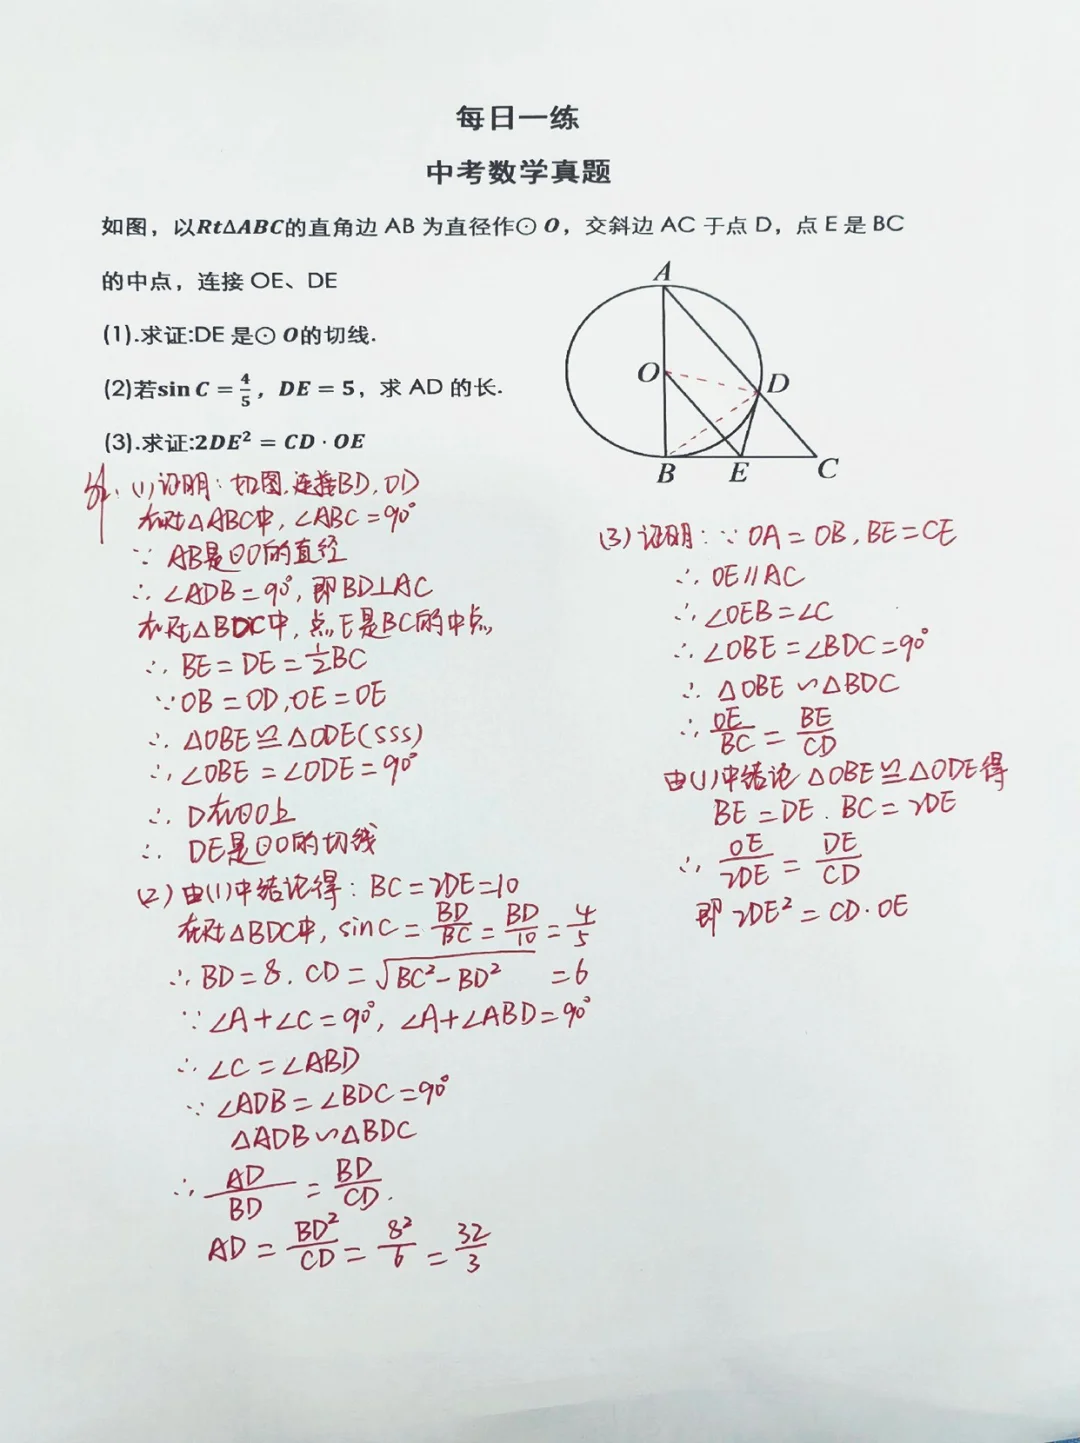 每日一练
中考数学真题
如图，以Rt△ABC的直角边 AB 为直径作⊙ O，交斜边 AC 于点 D，点 E 是 BC
的中点，连接 OE、DE
(1).求证:DE 是⊙ O的切线.
(2)若sin C = 4/5，DE = 5，求 AD 的长.
(3).求证:2DE² = CD · OE
A
O
D
B
E
C
解：(1)证明：如图,连接BD,OD
在Rt△ABC中,∠ABC=90°
∵ AB是⊙O的直径
∴ ∠ADB=90°,即BD⊥AC
在Rt△BDC中,点E是BC的中点
∴ BE=DE=1/2BC
∵OB=OD,OE=OE
∴ △OBE≌△ODE(SSS)
∴ ∠OBE=∠ODE=90°
∴ D在⊙O上
∴ DE是⊙O的切线
(2)由(1)中结论得：BC=2DE=10
在Rt△BDC中,sinC=BD/BC=BD/10=4/5
∴BD=8.CD=√(BC²-BD²) =6
∵∠A+∠C=90°,∠A+∠ABD=90°
∴ ∠C=∠ABD
∵ ∠ADB=∠BDC=90°
△ADB∽△BDC
∴ AD/BD=BD/CD.
AD=BD²/CD=8²/6=32/3
(3)证明：∵OA=OB,BE=CE
∴ OE∥AC
∴ ∠OEB=∠C
∴ ∠OBE=∠BDC=90°
∴ △OBE∽△BDC
∴ OE/BC=BE/CD
由(1)中结论△OBE≌△ODE得
BE=DE.BC=2DE
∴ OE/2DE=DE/CD
即2DE²=CD·OE